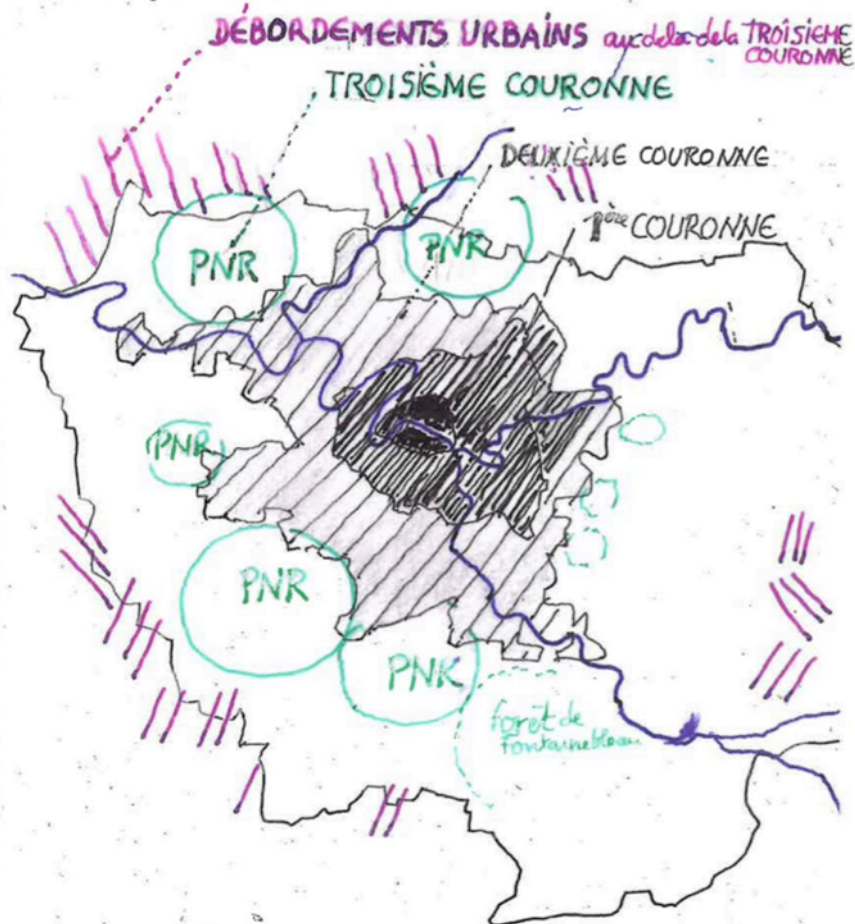 DÉBORDEMENTS URBAINS au delà de la TROISIEME
COURONNE
TROISIÈME COURONNE
DEUXIÈME COURONNE
1ère COURONNE
PNR
PNR
PNR
PNR
PNR
forêt de
Fontainebleau